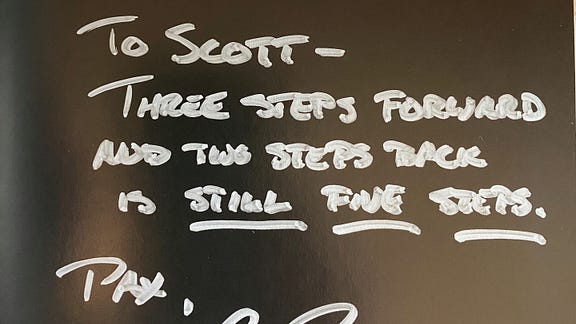 To Scott—
Three steps forward
and two steps back
is still five steps.
Pax,